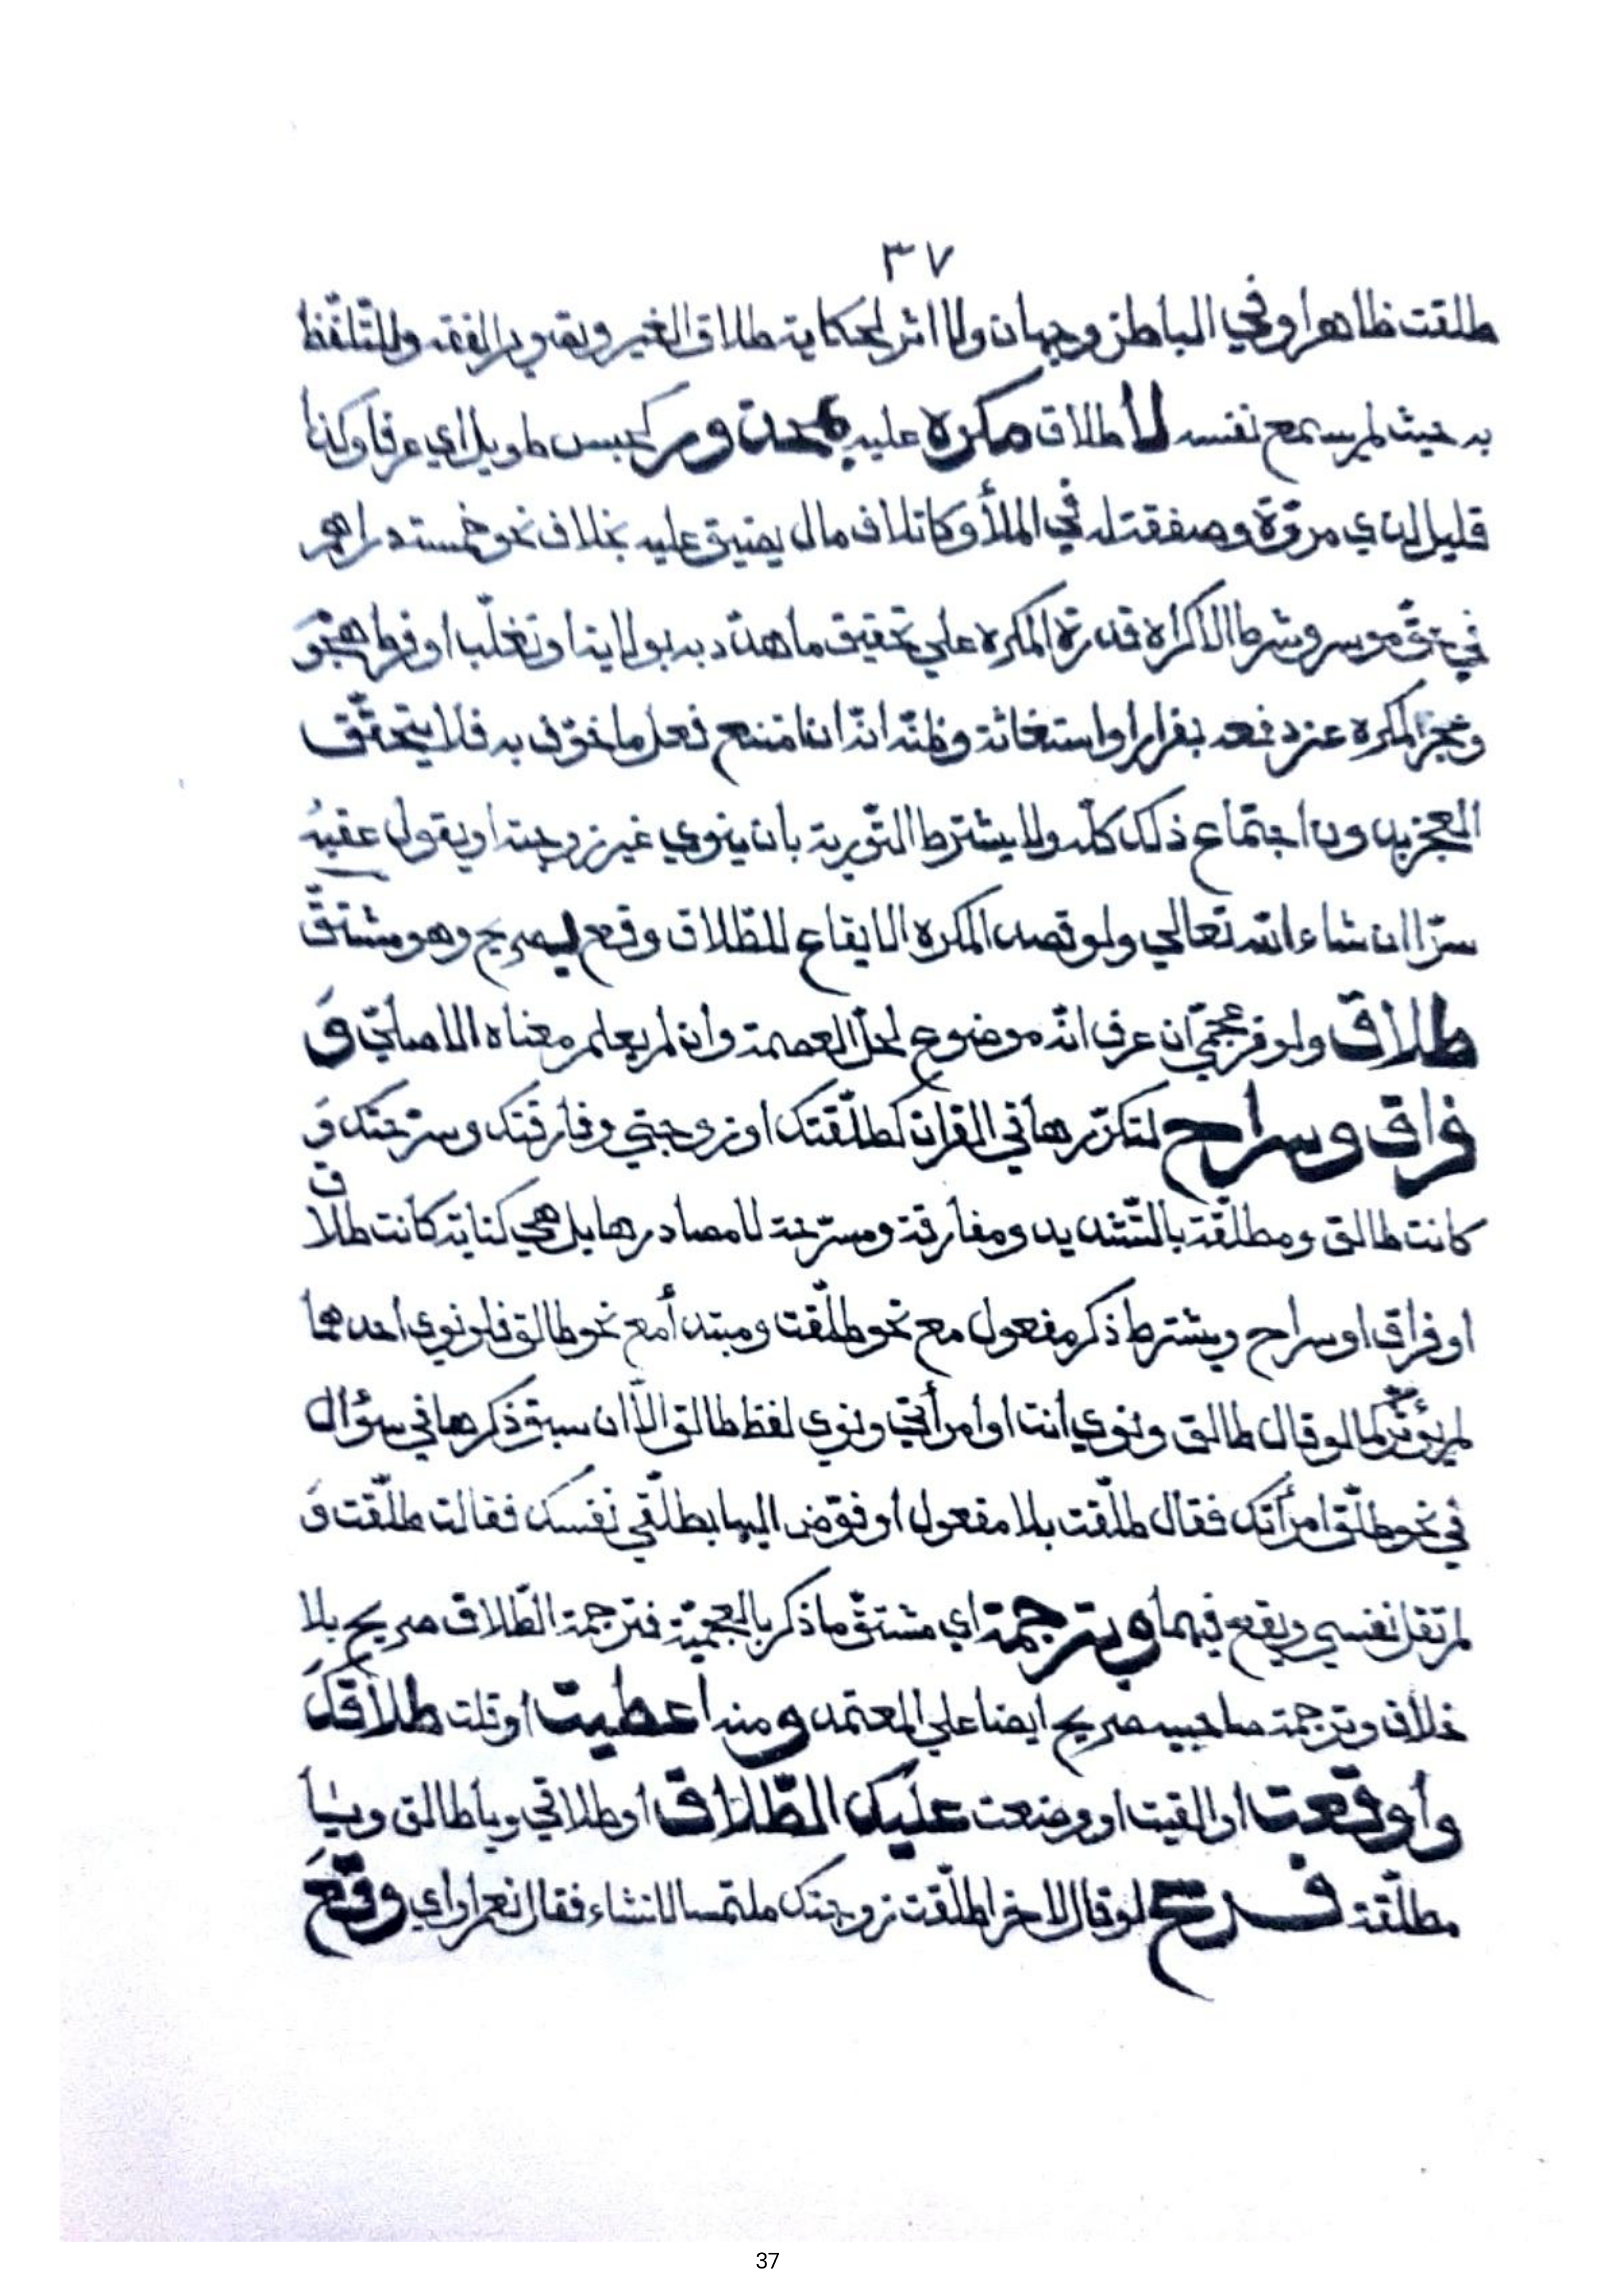 ٣٧
طلقت ظاهرا وفي الباطن وجهان ولا اثر لحكاية طلاق الغير وتصوير الفقه وللتلفّظ
به حيث لم يسمع نفسه لا طلاق مكره عليه بمحذور كحبس طويل اي عرفا وكذا
قليل لذي مروّة وصفقة له في الملأ وكاتلاف مال يضيق عليه بخلاف نحو خمسة دراهم
في حقّ موسر وشرط الاكراه قدرة المكره علي تحقيق ما هدّد به بولاية او تغلّب او فرط هجو
وعجز المكره عن دفعه بفرار او استغاثة وظنّه انّه ان امتنع فعل ما خوّف به فلا يتحقّق
العجز بدون اجتماع ذلك كلّه ولا يشترط التّورية بان ينوي غير زوجته او يقول عقبه
سرّا ان شاء الله تعالي ولو قصد المكره الايقاع للطّلاق وقع بصريح وهو مشتقّ
طلاق ولو من عجميّ ان عرف انّه موضوع لحلّ العصمة وان لم يعلم معناه الاصليّ وَ
فراق وسراح لتكرّرها في القران كطلّقتك او زوجتي وفارقتك وسرّحتك وَ
كانت طالق ومطلّقة بالتّشديد ومفارقة ومسرّحة لا مصادرها بل هي كناية كانت طلاق
او فراق او سراح ويشترط ذكر مفعول مع نحو طلّقت ومبتدأ مع نحو طالق فلو نوي احدهما
لم يؤثّر كما لو قال طالق ونوي انت او امرأتي ونوي لفظ طالق الّا ان سبق ذكرها في سؤال
في نحو طلّق امرأتك فقال طلّقت بلا مفعول او فوّض اليها بطلّقي نفسك فقالت طلّقت وَ
لم تقل نفسي فيقع فيهما وبترجمة اي مشتقّ ما ذكر بالعجميّة فترجمة الطّلاق صريح بلا
خلاف وترجمة صاحبيه صريح ايضا علي المعتمد ومنه اعطيت او قلت طلاقك
واوقعت او القيت او وضعت عليك الطّلاق او طلاقي ويا طالق ويا
مطلّقة فرع لو قال لاخر اطلّقت زوجتك ملتمسا لانشاء فقال نعم او اي وقع
37